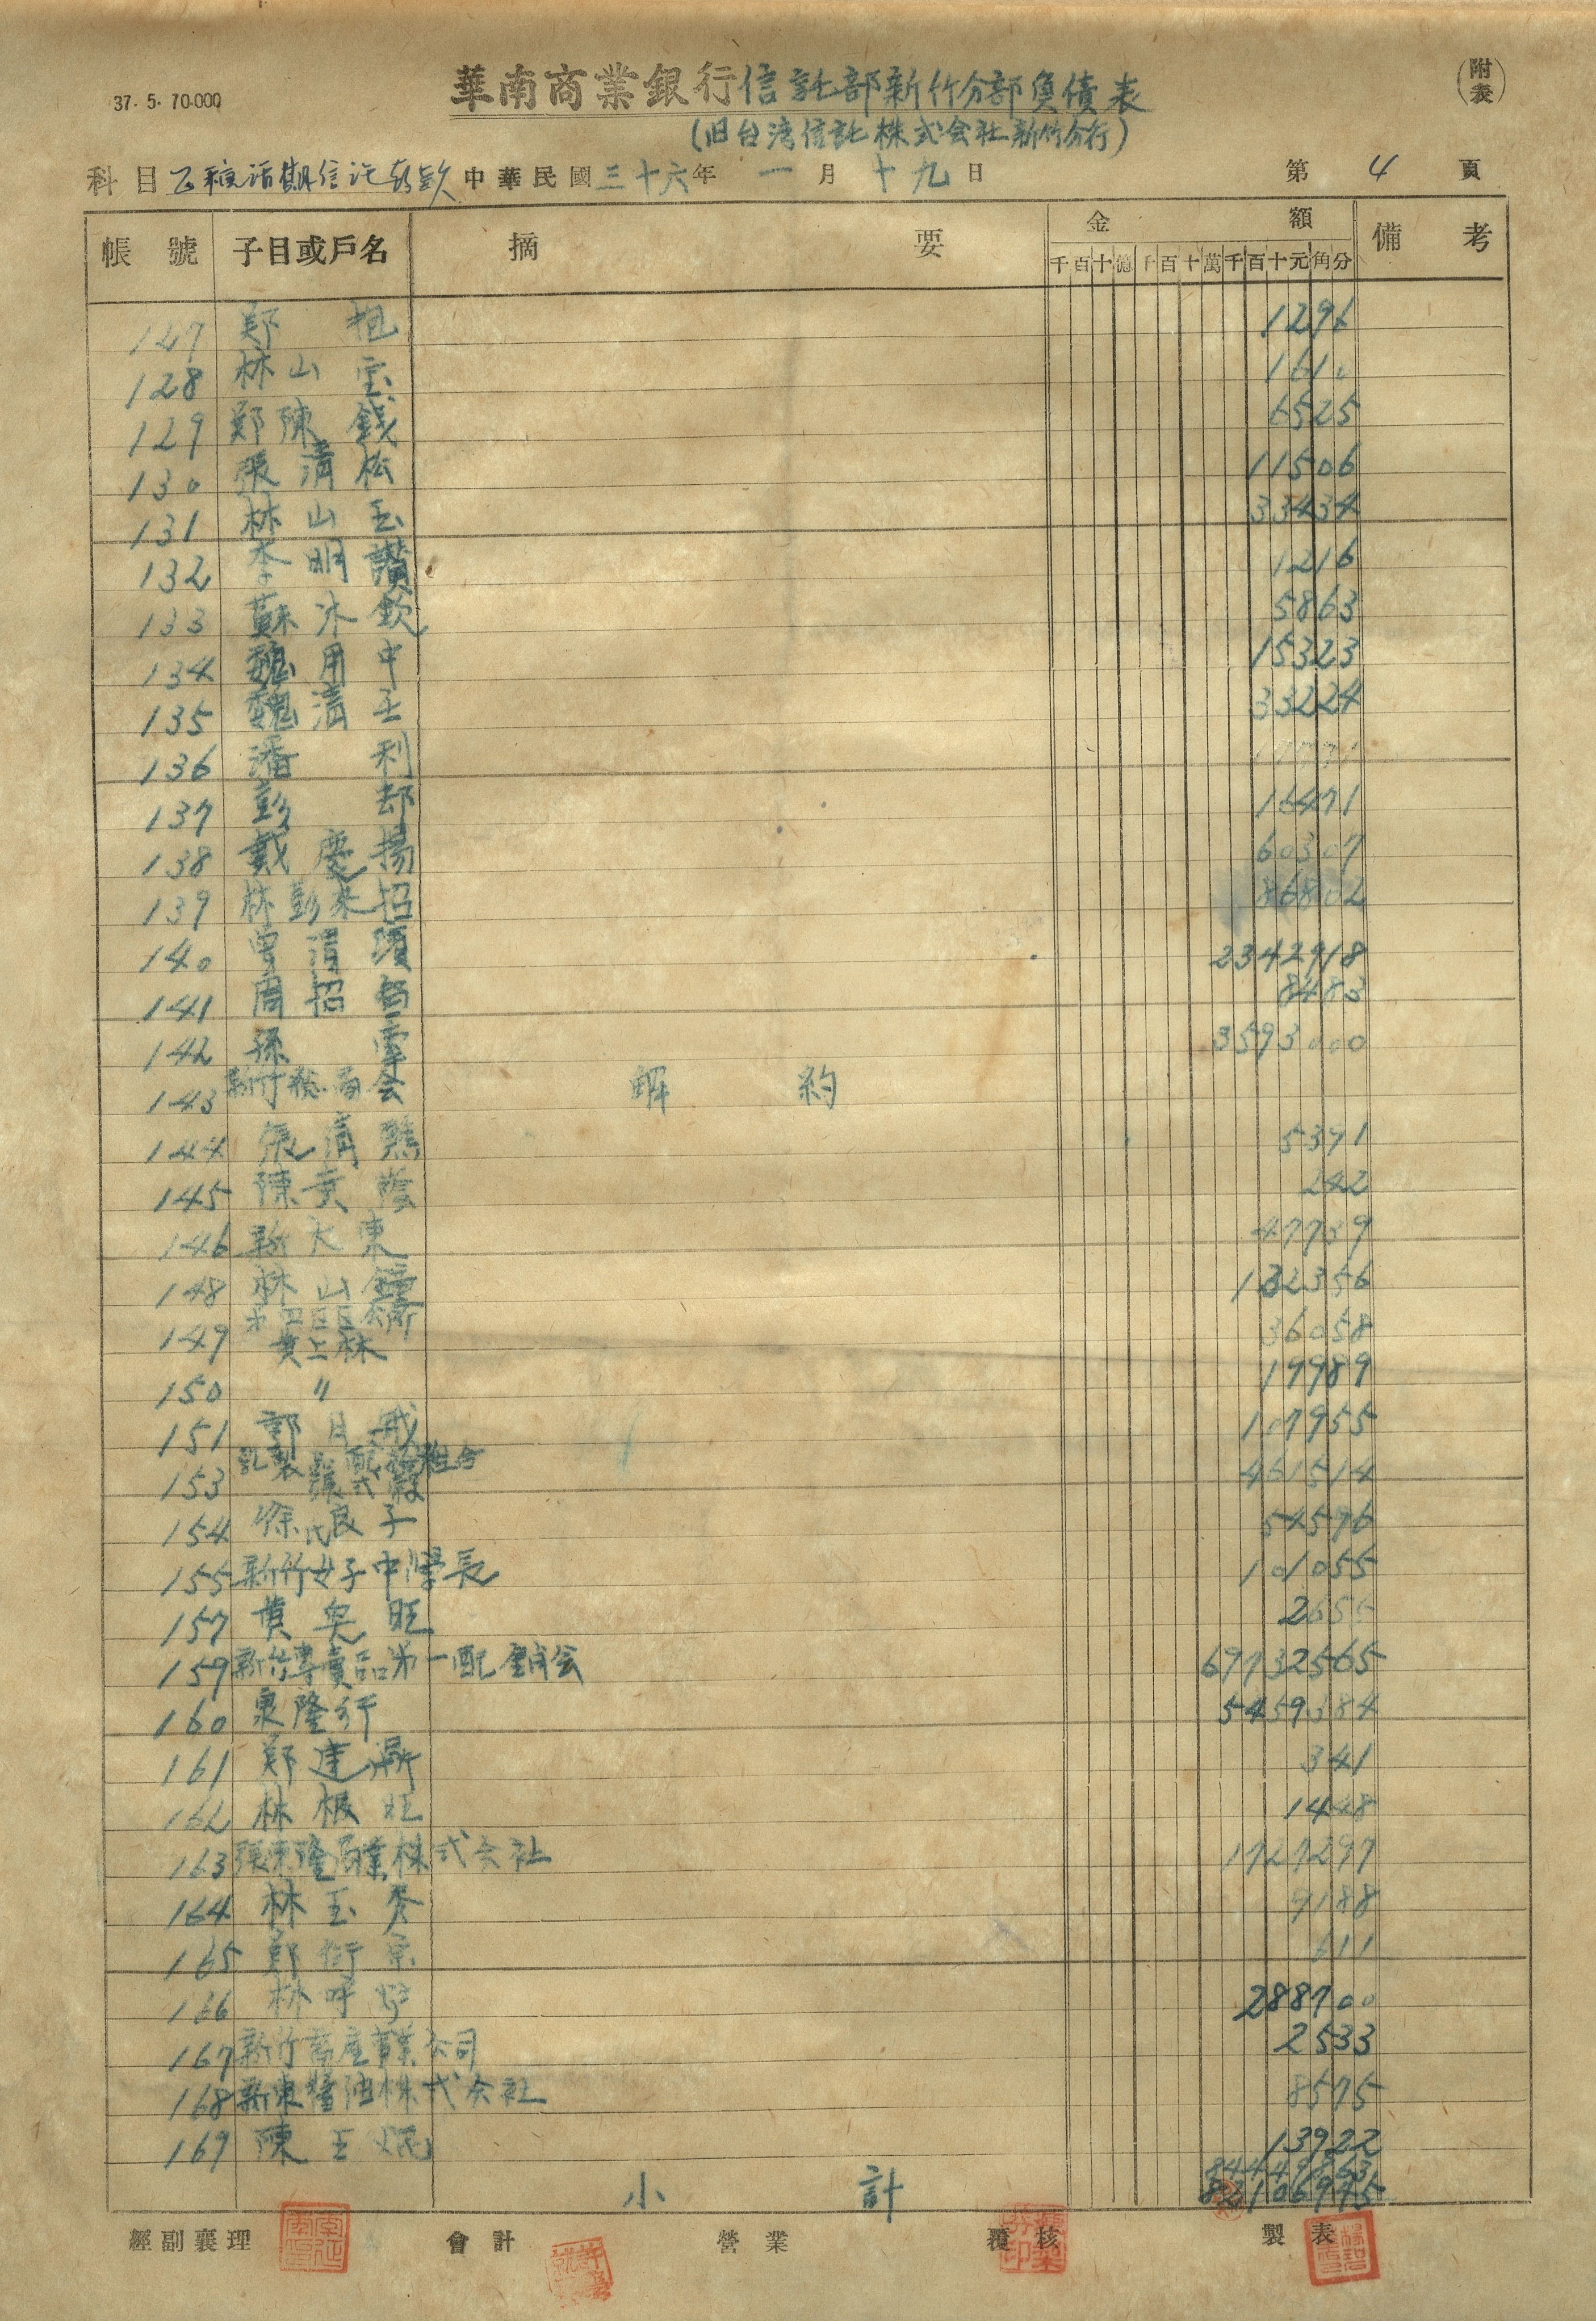 37. 5. 70.000
華南商業銀行信託部新竹分部負債表
(附表)
(旧台湾信託株式会社新竹分行)
科目 乙種活期信託存款 中華民國三十六年一月十九日 第4頁
帳號 子目或戶名 摘要 金額 備考
千百十億千百十萬千百十元角分
127 鄭 抱 1296
128 林山宝 1610
129 鄭陳錢 6525
130 張清松 11506
131 林山玉 33434
132 李明讚 1216
133 蘇氷欽 5863
134 魏用中 15323
135 魏清壬 33224
136 潘 利
137 彭 却 16471
138 戴慶揚 60307
139 林彭米招 86802
140 曾清須 2342918
141 周招 8483
142 孫 3593000
143 新竹 会 解約
144 張清 5391
145 陳黃 242
146 新大東 47739
148 林山鐘 132356
149 第四区区公所 黃上林 36058
150 〃 19989
151 郭日 107955
153 乳製 配給組合 張式穀 461514
154 徐氏良子 54596
155 新竹女子中學長 101055
157 黃 旺 2656
159 新竹專賣品第一配銷会 69732565
160 泉隆行 5459384
161 鄭建 341
162 林根旺 1448
163 張東隆商業株式会社 1727297
164 林玉 9188
165 鄭 611
166 林呼 288700
167 新竹 公司 2533
168 新東醬油株式会社 8575
169 陳玉 13922
小計 82106995
經副襄理 會計 營業 覆核 製表